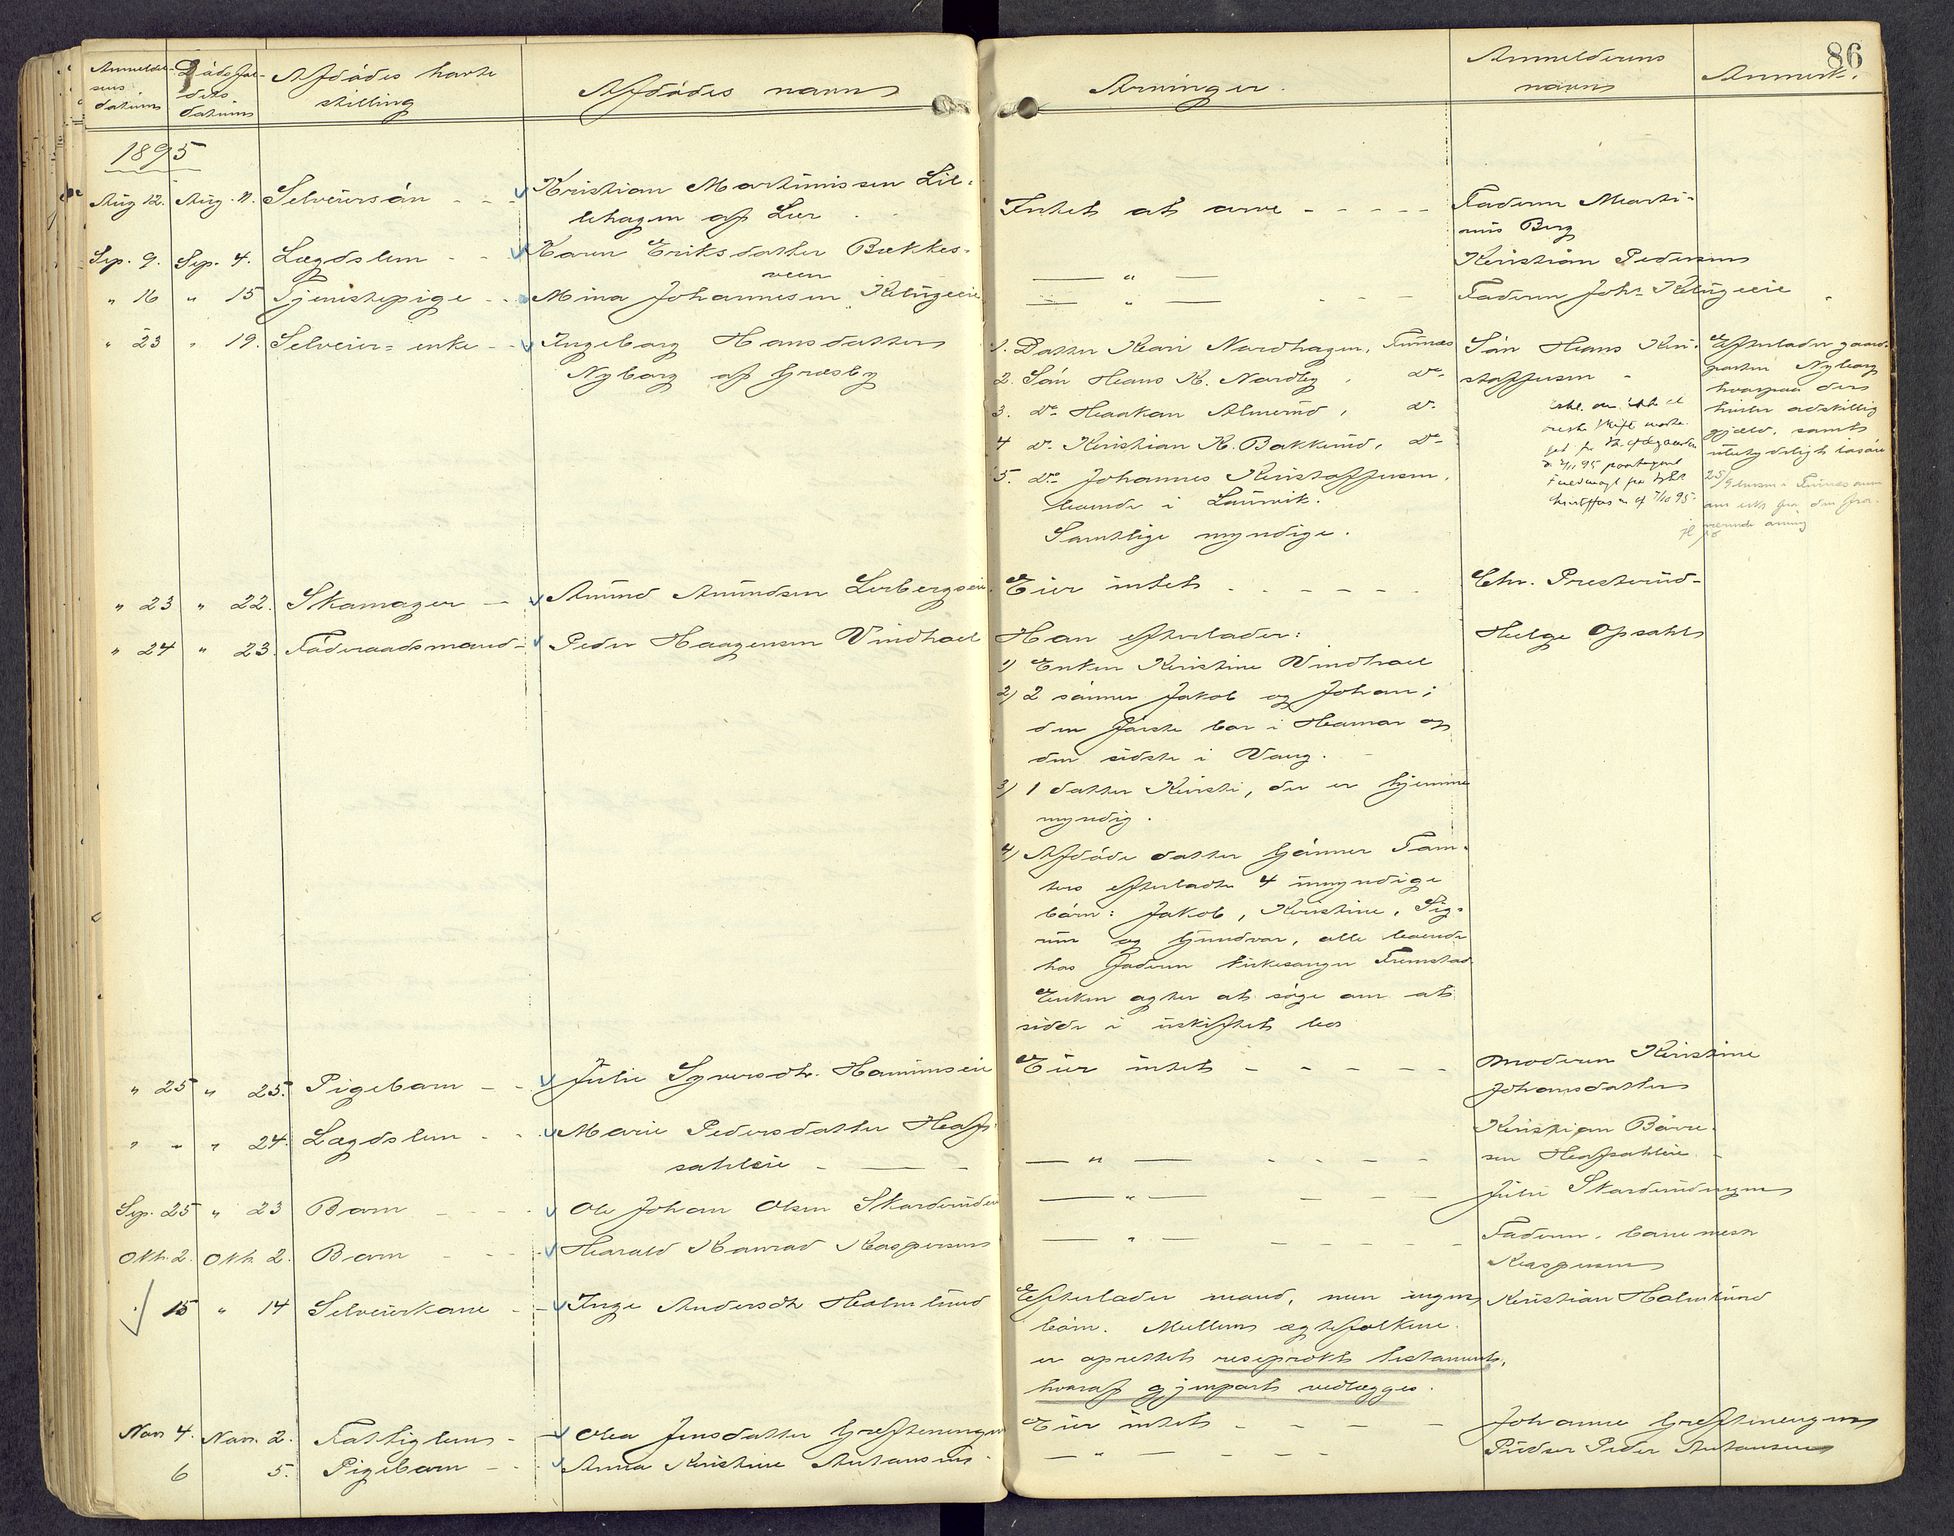 86
Anmeldel-
sens
datum
Dødsfal-
dets
datum
Afdødes harte
stilling
Afdødes navn
Arvinger.
Anmelderens
navn
Anmerk.
1895
Aug 12. Aug. 11. Selveiersøn - - - Kristian Martinissen Lil-
lehagen af Lier
Intet at arve - - - - - Faderen Marti-
nus Berg
Sep. 9. Sep. 4. Lægdslem - - Karen Eriksdatter Bækkes-
veen
— " — Kristian Pedersen
" 16 " 15 Tjenestepige - - Mina Johannesen Klugeeie
— " — - - - Faderen Johs Klugeeie
" 23 " 19. Selveier-enke - - Ingeborg Hansdatter
Nyborg af Græsby
1. Datter Kari Nordhagen, Furnæs
2. Søn Hans K. Nordby, do
3. do Haakan Almerud, do
4 do Kristian K. Bakkerud, do
5. do Johannes Kristoffersen,
boende i Laurvik.
Samtlige myndige.
Søn Hans Kri-
stoffersen -
Efterlader gaard-
parten Nyborg
hvorpaa der
hviler adskillig
gjæld, samt
ubetydeligt løsøre
" 23 " 22. Skomager - - Amund Amundsen Lerbergseie.
Eier intet - - - - - - Chr. Presterud-
" 24 " 23. Føderaadsmand - Peder Haagensen Vindhoel
Han efterlader:
Helge Opsahl
1) Enken Kristine Vindhoel
2) 2 sønner Jakob og Johan;
den første bor i Hamar og
den sidste i Vang.
3) 1 datter Kristi, der er hjemme
myndig.
4) Afdøde datter Gønner Fam-
ters efterladte 4 umyndige
børn: Jakob, Kristine, Sig-
run og Gundvor, alle boende
hos faderen kirkesanger Fremstad.
Enken agter at søge om at
sidde i uskiftet bo
" 25 " 25. Pigebarn - - Julie Syversdtr. Hommseie
Eier intet - - - - - Moderen Kristine
Johansdatter
" - " 24. Lægdslem - - Marie Pedersdatter Hof-
sahleie - — -
— " — - - - - Kristian Børre-
sen Hofsahleie -
Sep. 25 " 23 Barn - - - - Ole Johan Olsen Skarderudeie
— " — - - - Julie Skarderudengen
Okt. 2. Okt. 2. Barn - - - Harald Konrad Kaspersen
— " — - - - - - Faderen, banemest
Kaspersen
15 " 14 Selveierkone - - Inge Andersdtr Holmlund
Efterlader mand, men ingen
børn. Mellem ægtefolkene
er oprettet resiprokt testament,
hvoraf gjenpart vedlægges.
Kristian Holmlund
Nov 4. Nov. 2. Fattiglem - - Olea Jensdatter Greftenengen
Eier intet - - - - Johanne Greftenengen
6 5. Pigebarn - - Anna Kristine Antonsen -
— " — - - - Peder Antonsen